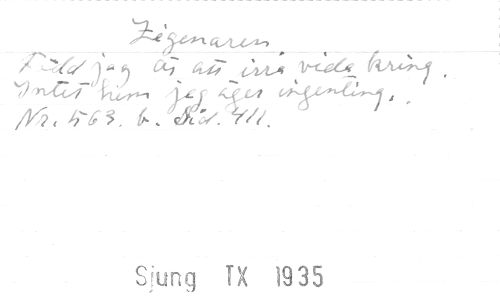 Zigenaren
Född jag är att irra vida kring.
Intet hem jag äger ingenting.
Nr. 563. b. Sid. 411.
Sjung TX 1935